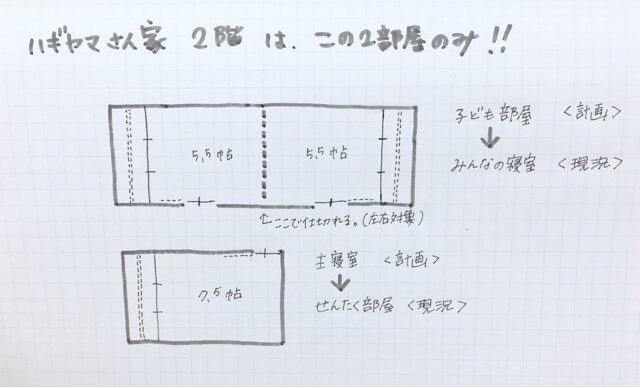 ハギヤマさん家 2階 は、この2部屋のみ!!
子ども部屋 <計画>
5.5帖 5.5帖
↓
みんなの寝室 <現況>
←ここで仕切れる。(左右対象)
主寝室 <計画>
↓
7.5帖
せんたく部屋 <現況>